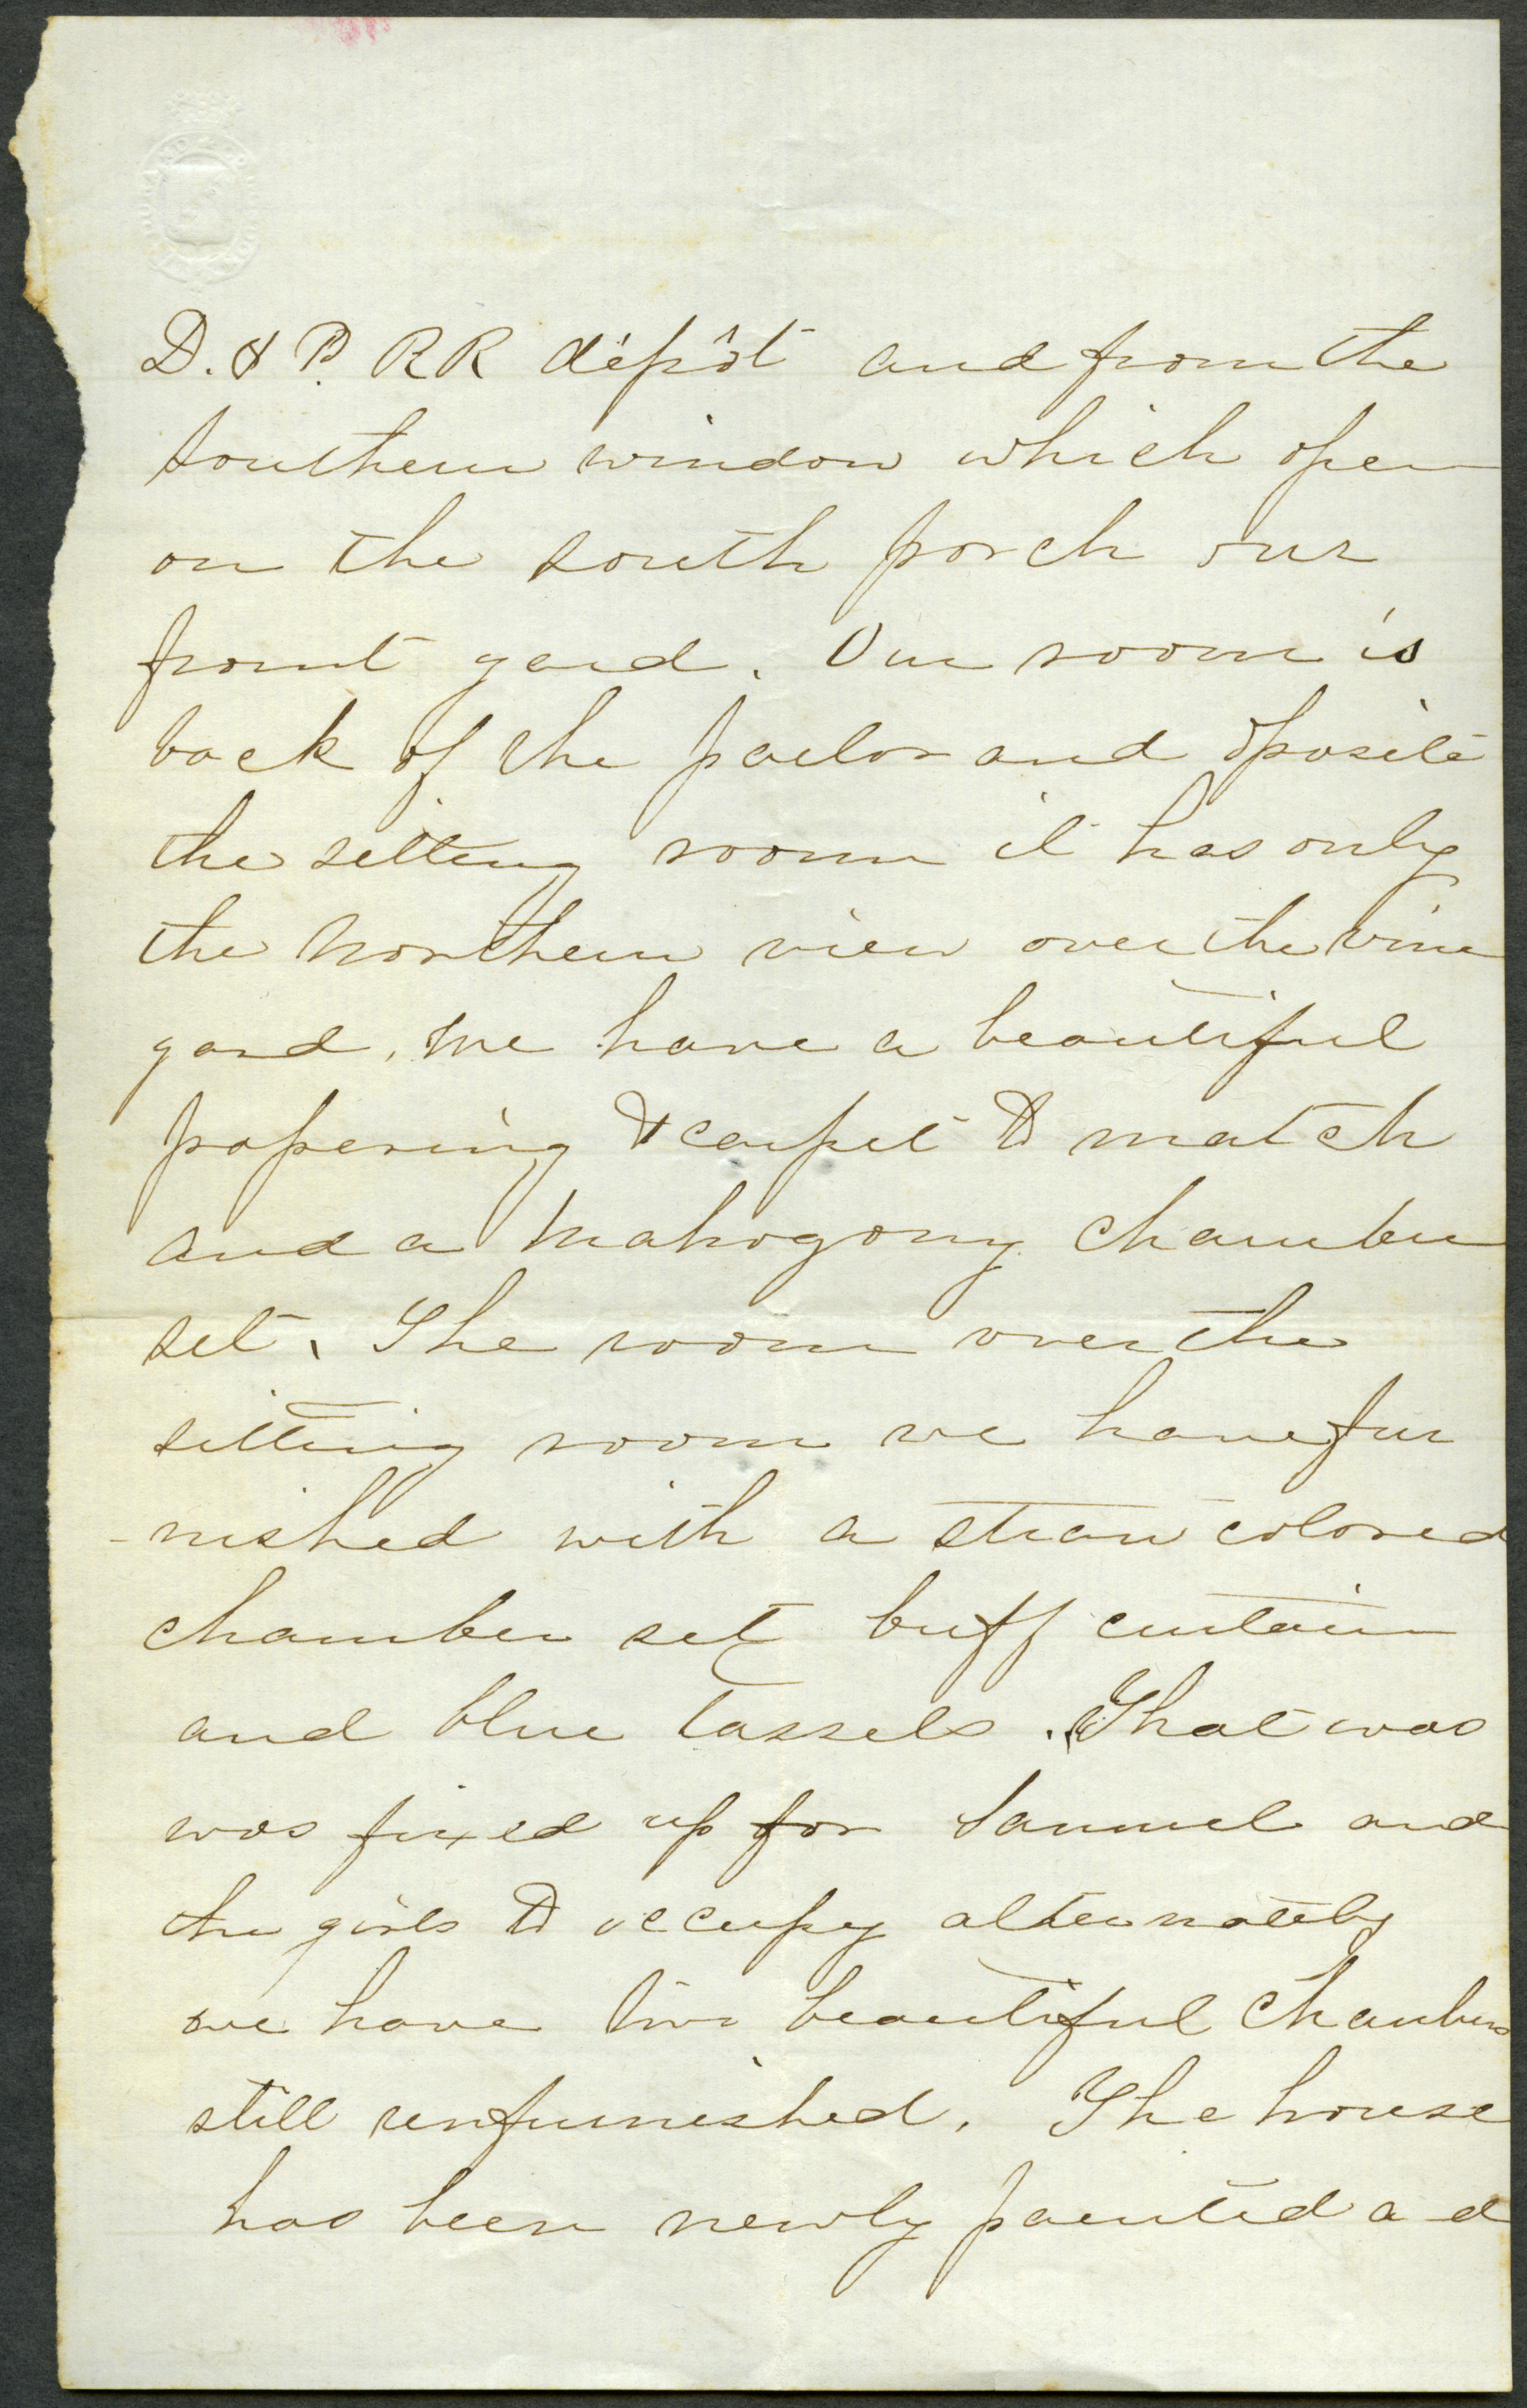 D. & P. RR dépôt and from the
southern window which open
on the south porch our
front yard. Our room is
back of the parlor and oposite
the sitting room it has only
the northern view over the vine
yard, we have a beautiful
papering & carpet to match
and a mahogony chamber
set. The room over the
sitting room we have fur
-nished with a straw colored
chamber set buff curtain
and blue tassels. That was
was fixed up for Samuel and
the girls to occupy alternately
we have two beautiful chambers
still unfurnished. The house
has been newly painted a d